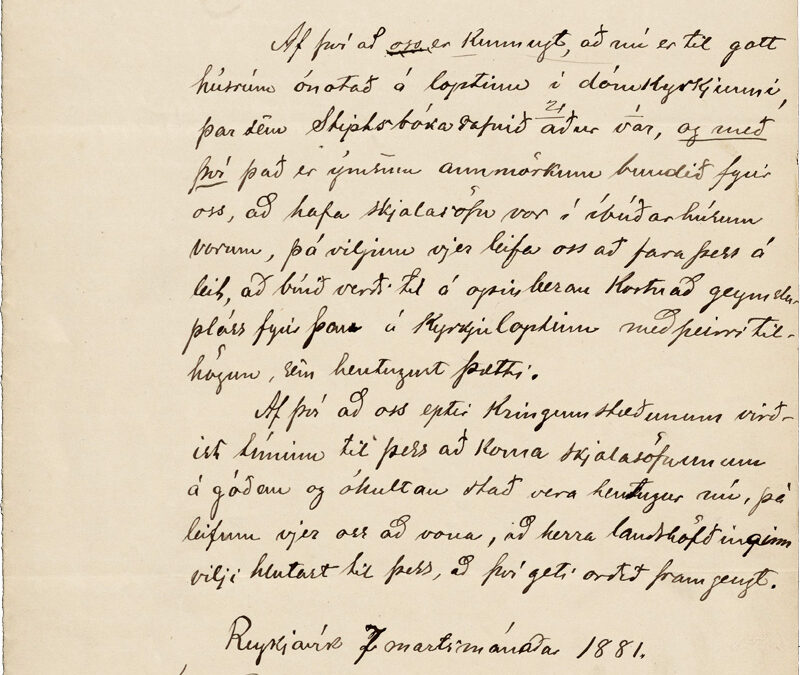 Af því að oss er kunnugt, að nú er til gott
húsrúm ónotað á loptinu í dómkyrkjunni,
þar sem Stiptsbókasafnið áður var, og með
því það er ýmsum annmörkum bundið fyrir
oss, að hafa skjalasöfn vor í íbúðarhúsum
vorum, þá viljum vjer leifa oss að fara þess á
leit, að búið verði til á opinberan kostnað geymslu-
pláss fyrir þau á kyrkjuloptinu með þeirri til-
högun, sem hentugust þætti.
Af því að oss eptir kringumstæðunum virð-
ist tíminn til þess að koma skjalasöfnunum
á góðan og óhultan stað vera hentugur nú, þá
leifum vjer oss að vona, að herra landshöfðinginn
vilji hlutast til þess, að því geti orðið framgengt.
Reykjavík 7 martsmánaðar 1881.